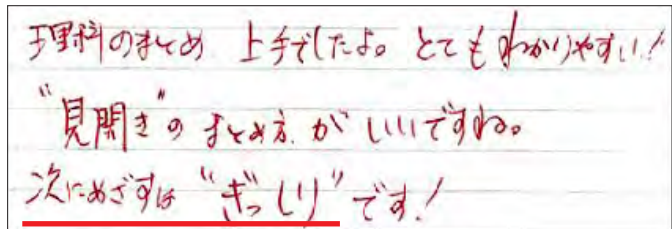 理科のまとめ 上手でしたよ。とてもわかりやすい!
"見開き"のまとめ方がいいですね。
次にめざすは"ぎっしり"です!